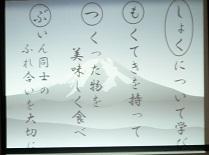 しょくについて学
もくてきを持って
つくった物を
美味しく食べ
ぶいん同士の
ふれ合いを大切に